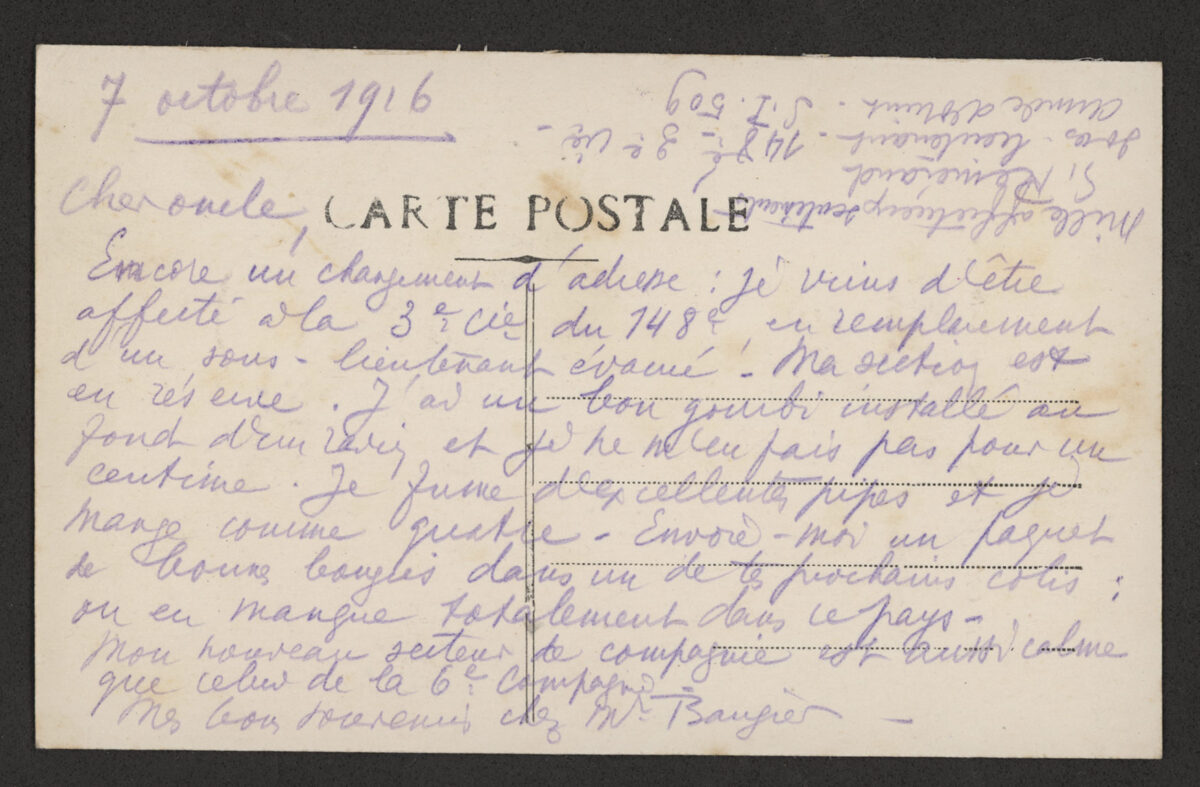 7 octobre 1916
Cher oncle,
CARTE POSTALE
Encore un changement d'adresse : je viens d'être
affecté à la 3e Cie du 148e, en remplacement
d'un sous-lieutenant évacué. Ma section est
en réserve. J'ai un bon gourbi installé au
fond d'un ravin et je ne m'en fais pas pour un
centime. Je fume d'excellentes pipes et je
mange comme quatre - Envoie-moi un paquet
de bonnes bougies dans un de tes prochains colis :
on en manque totalement dans ce pays -
Mon nouveau secteur de compagnie est aussi calme
que celui de la 6e Compagnie -
Mes bons souvenirs chez Mr Baugier -
Mille affectueux sentiments
G. Rémérand
sous-lieutenant - 148e - 3e Cie -
Armée d'Orient - S.P. 509